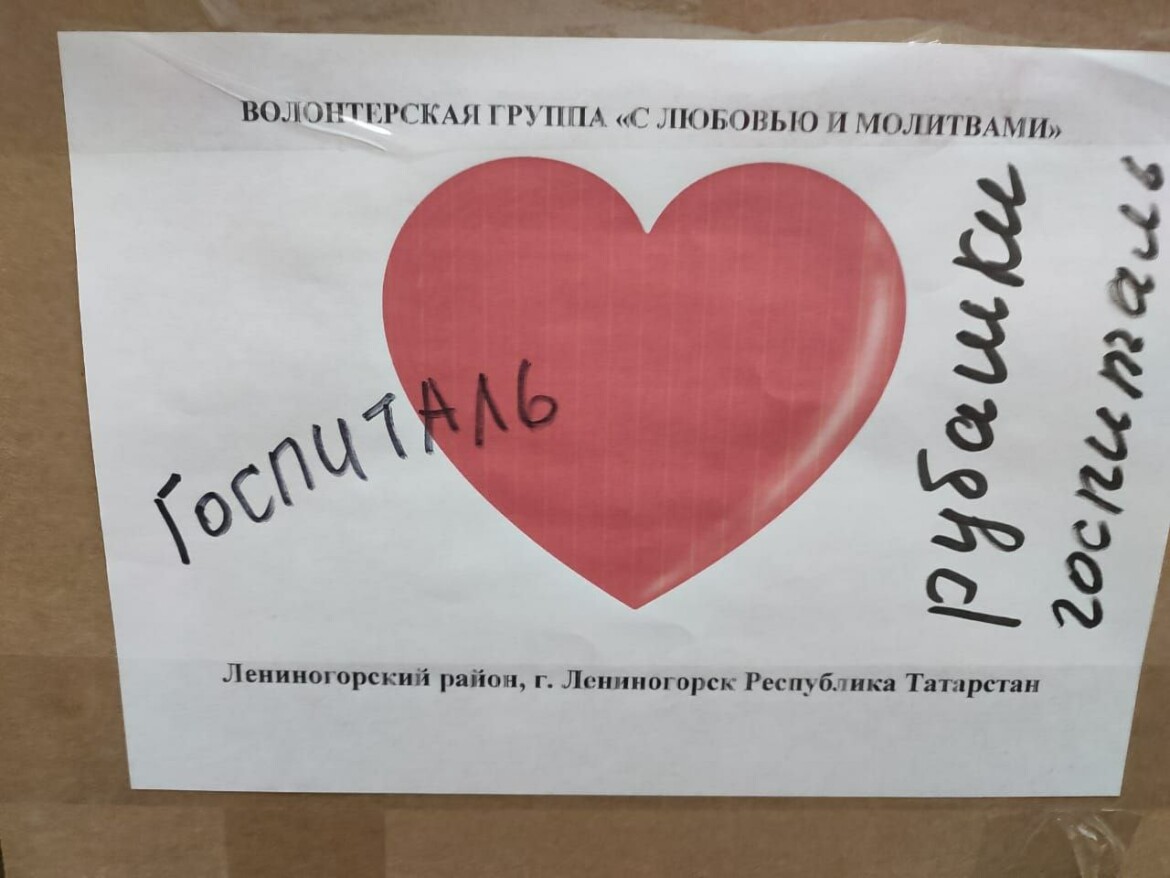 ВОЛОНТЕРСКАЯ ГРУППА «С ЛЮБОВЬЮ И МОЛИТВАМИ»
Госпиталь
рубашки
госпиталь
Лениногорский район, г. Лениногорск Республика Татарстан